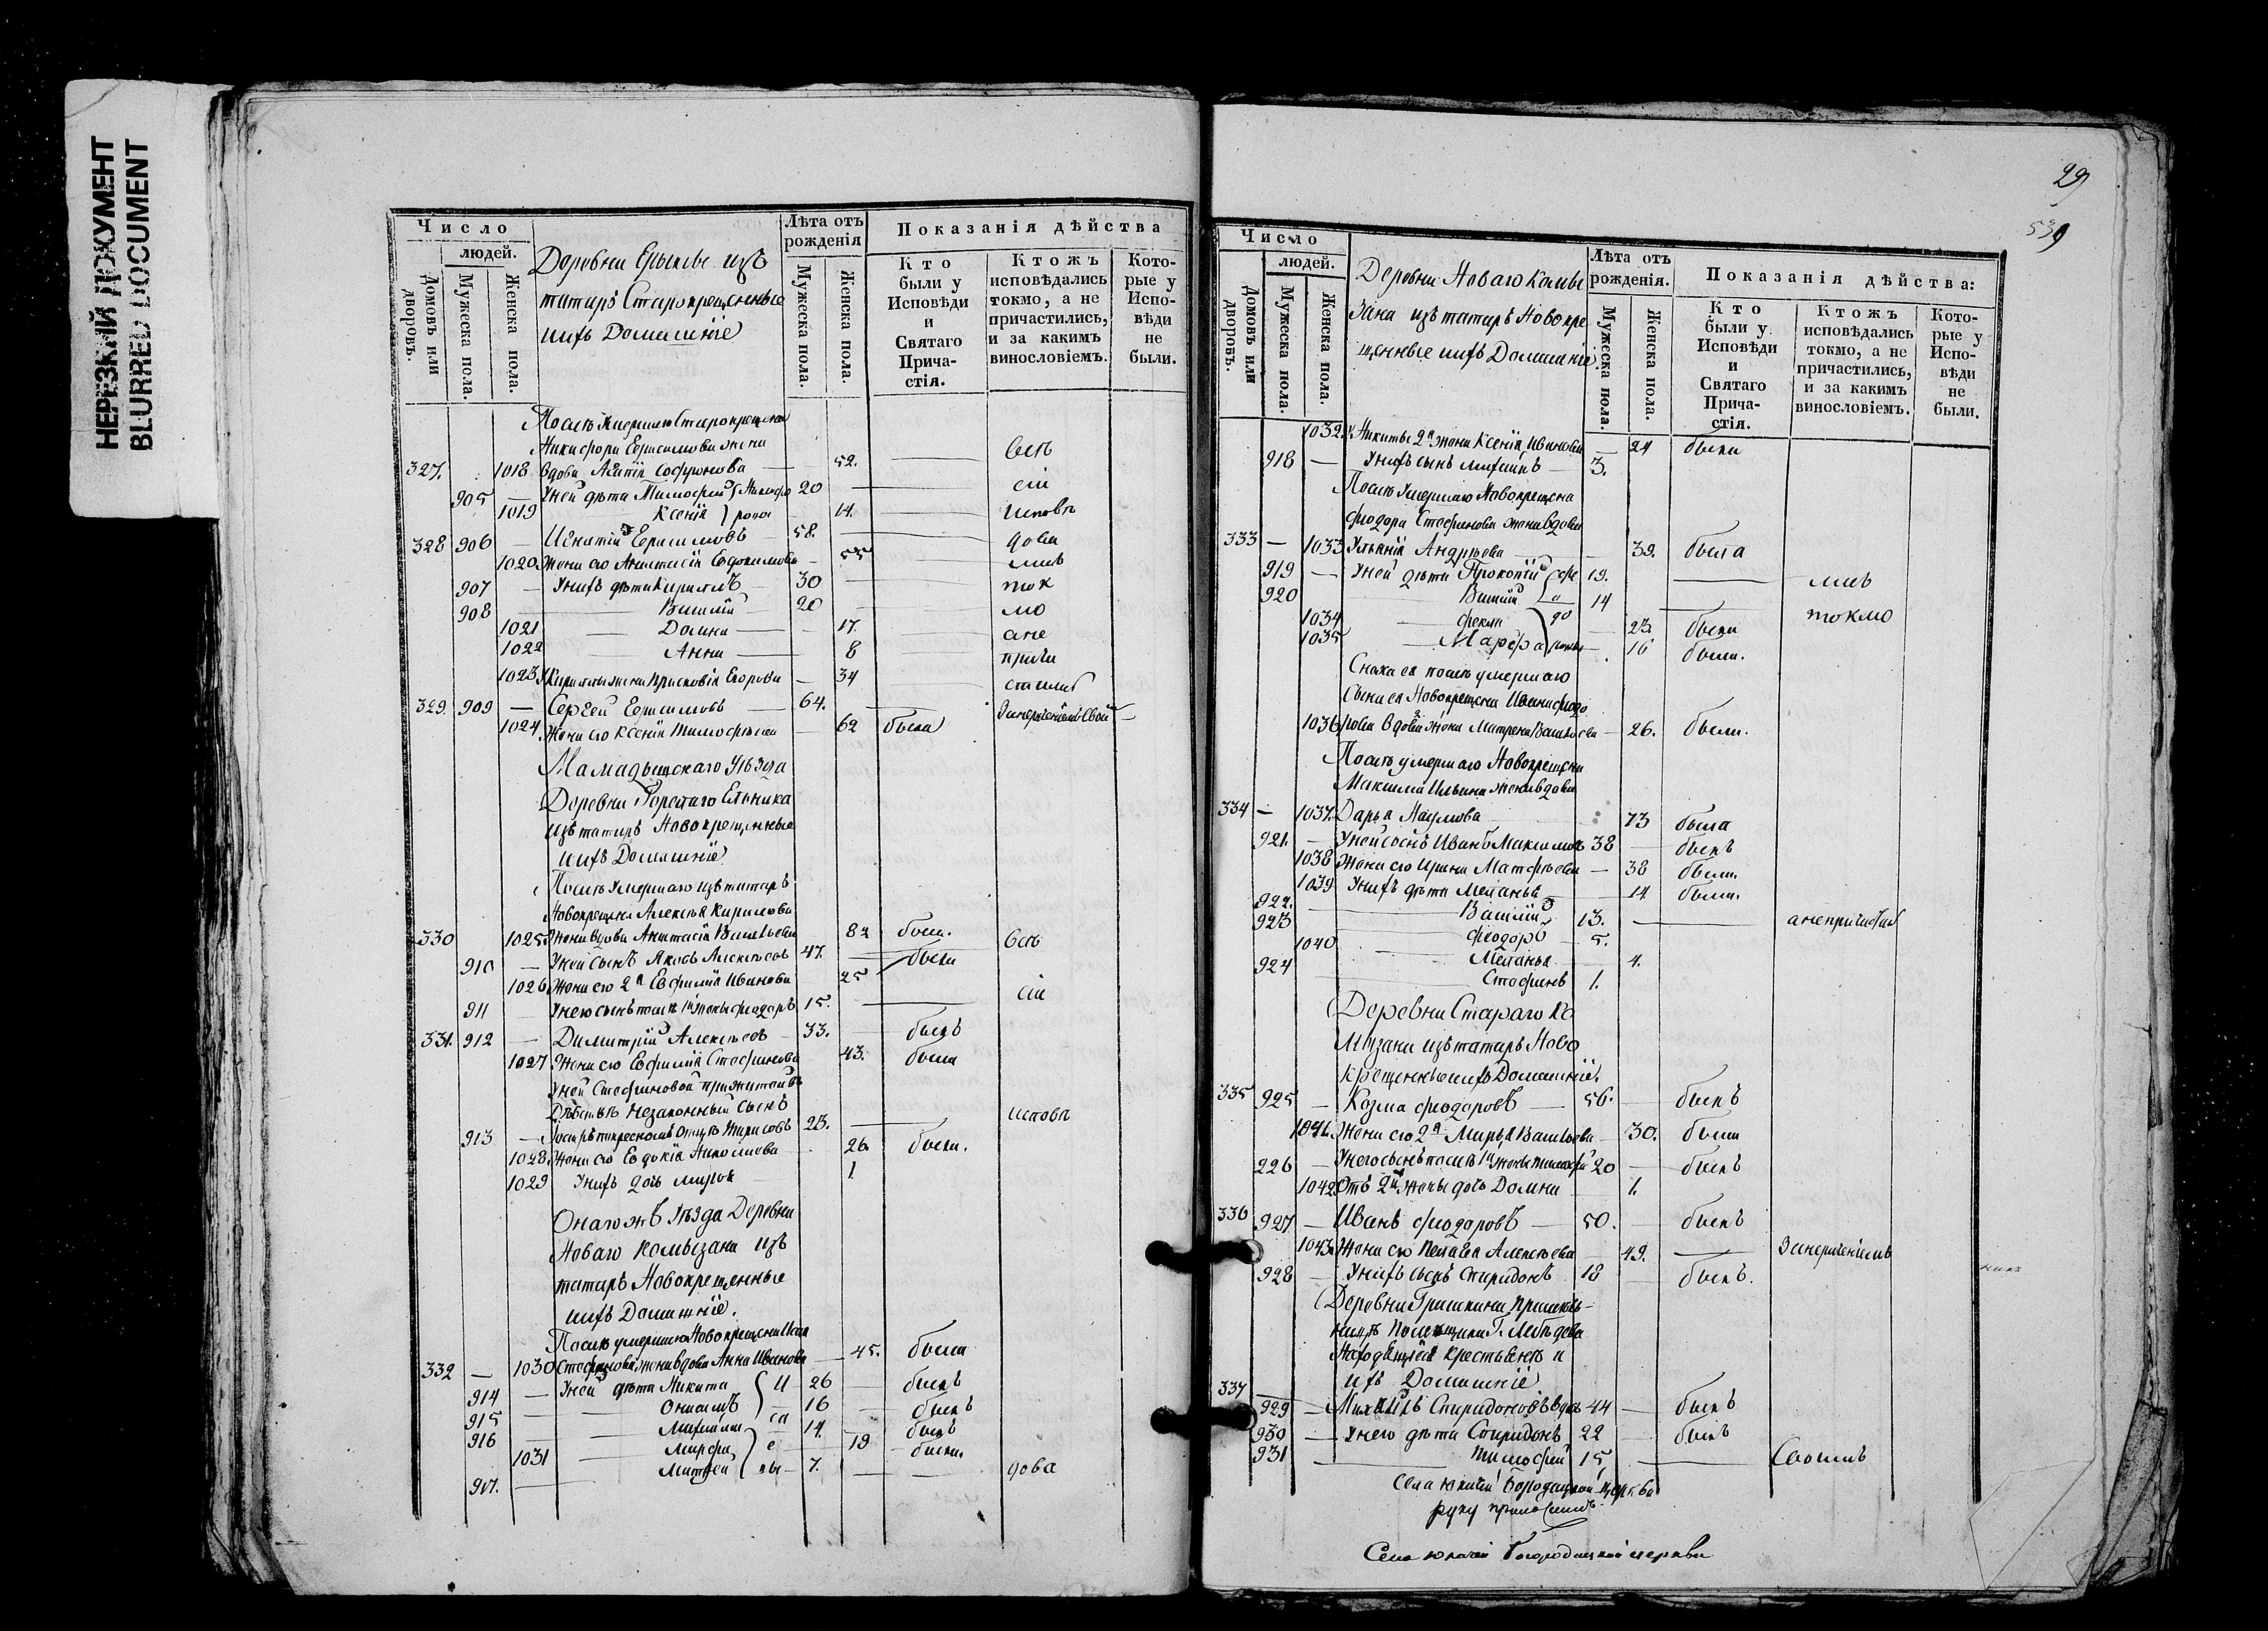 НЕРЕЗКИЙ ДОКУМЕНТ
BLURRED DOCUMENT
Число
людей.
Домовъ или дворовъ.
Мужеска пола.
Женска пола.
Деревни изъ
татаръ Старокрещенные
ихъ Домашніе
Лѣта отъ рожденія
Мужеска пола.
Женска пола.
Показанія дѣйства
Кто были у Исповѣди и Святаго Прича-стія.
Ктожъ исповѣдались токмо, а не причастились, и за какимъ винословіемъ.
Кото-рые у Испо-вѣди не были.
Послѣ Умершаго Старокрещена
Никифора Герасимова жена
327. 1018 вдова Агапія Софронова 52. Всѣ
905 — Уней дѣти Тимофей Никифо 20 — сіи
1019 Ксенія ровы 14. — исповѣ
328 906 — Игнатій Герасимовъ 58. — дова
1020 Жена его Анастасія Евдокимова — 55 — лись
907 — Унихъ дѣти Кирилъ 30 — ток
908 Василій 20 — мо
1021 Домна — 17. — а не
1022 Анна — 8 — прича
1023 Кирилы жена Прасковія Егорова — 34 — стились
329. 909 — Сергей Герасимовъ 64. —
1024 Жена его Ксенія Тимофѣева — 62 была
Мамадышскаго Уѣзда
Деревни Горелаго Ельника
изъ татаръ Новокрещенные
ихъ Домашніе
Послѣ Умершаго изъ татаръ
Новокрещена Алексѣя Кирилова
330 1025 Жена вдова Анастасія Васильева 82 была.
910 — Уней сынъ Яковъ Алексѣевъ 47. — Всѣ
1026 Жена его 2я Евфимія Иванова 25 была
911 Унего сынъ 1й жены Феодоръ 15. — сіи
331. 912 — Димитрій Алексѣевъ 33. — былъ
1027 Жена его Евфимія Стефанова 43. была
Уней Стефановой прижитой въ
Дѣвствѣ незаконный сынъ
913 — 23. — исповѣ
1028 Жена его Евдокія 26. была.
1029 Унихъ дочь 1.
Онаго жъ Уѣзда Деревни
Новаго Комызана изъ
татаръ Новокрещенные
ихъ Домашніе.
Послѣ умершаго Новокрещена Исая
332 — 1030 Стефанова жена вдова Анна Иванова — 45. была
914 — Уней дѣти Никита И 26 — былъ
915 — 16 — былъ
916 — са 14. — былъ
1031 Марфа е — 19 была
917. — Матвей вы 7. — дова
29
539
Число
людей.
Домовъ или дворовъ.
Мужеска пола.
Женска пола.
Деревни Новаго Комы
зана изъ татаръ Новокре
щенные ихъ Домашніе
Лѣта отъ рожденія.
Мужеска пола.
Женска пола.
Показанія дѣйства:
Кто были у Исповѣди и Святаго Прича-стія.
Ктожъ исповѣдались токмо, а не причастились, и за какимъ винословіемъ.
Кото-рые у Испо-вѣди не были.
1032. Никиты 2я жена Ксенія Иванова — 24 была
918 — Унихъ сынъ 3.
Послѣ Умершаго Новокрещена
Феодора Стефанова жена вдова
333 — 1033 Ульянія Андрѣева — 39. была
919 — Уней дѣти Прокопій Фе 19. — лись
920 Василій о 14 — токмо
1034 Фекла до — 23. была
1035 Марфа ровы — 16 была.
Сноха ея послѣ умершаго
Сына ея Новокрещена Ивана Феодо
1036 рова вдова жена Матрена Васильева — 26. была.
Послѣ умершаго Новокрещена
Максима Ильина жена вдова
334 — 1037. Дарья Наумова 73 была
921. — Уней сынъ Иванъ Максимовъ 38 — былъ
1038 Жена его Ирина Матфѣева — 38 была.
1039 Унихъ дѣти Меланья — 14 была.
922. Василій 13. — а не причастил
923 Феодоръ 5.
1040 Меланья 4.
924 Стефанъ 1.
Деревни Стараго Ко
мызана изъ татаръ Ново
крещенные ихъ Домашніе.
335 925 — Козма Феодоровъ — 56. — былъ
1041. Жена его 2я Марья Васильева — 30. была
226 — Унего сынъ послѣ 1й жены Тимофей 20 — былъ
1042 Отъ 2й жены дочь Домна 1.
336 927 — Иванъ Феодоровъ — 50. — былъ
1043. Жена его Пелагея Алексѣева 49. —
928 — Унихъ сынъ Спиридонъ 18 — былъ.
Деревни Гришкина
Помещика Г. Лебедева
Находящіеся крестьяне и
ихъ Домашніе
337 929 — Михаилъ Спиридоновъ вдовъ 44 — былъ
930 — Унего дѣти Спиридонъ 22 — былъ
931 — Тимофей 15 —
Села Богородицкой церкви
руку приложилъ.
Села Богородицкой церкви